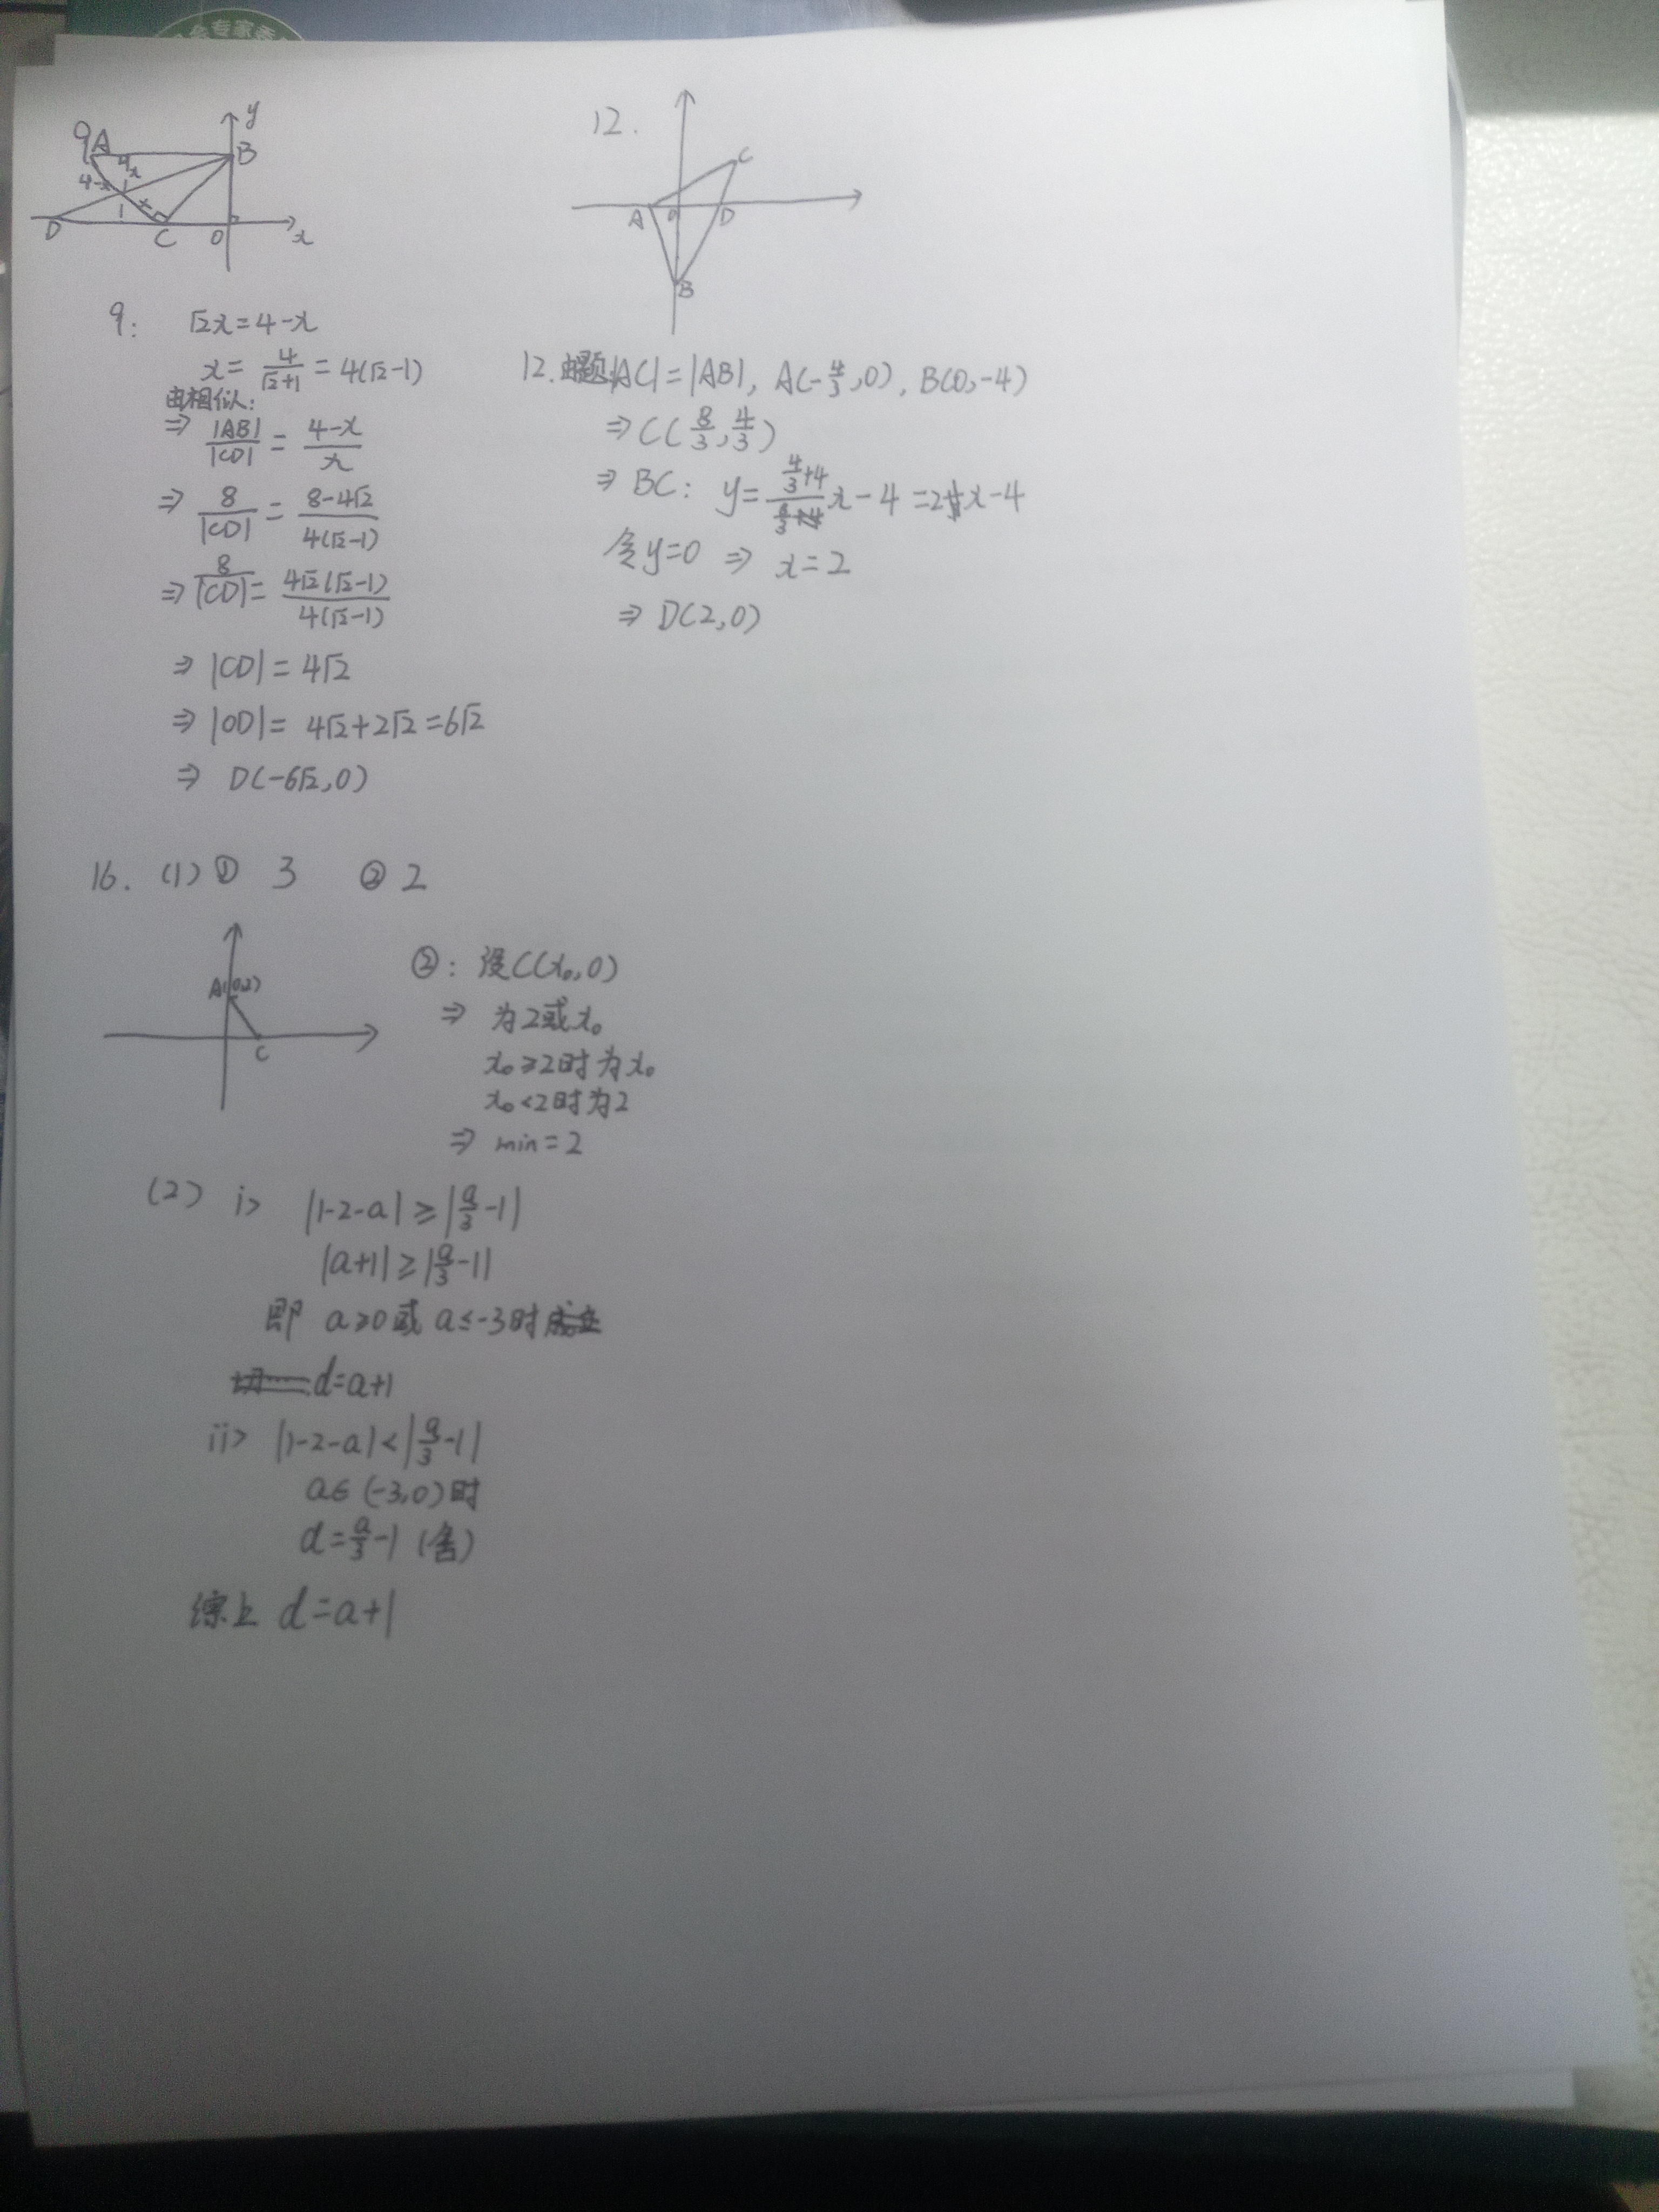 专家委
y
9
A
B
4-x
x
x
D
C
O
x
12.
C
A
O
D
B
9:
√2x=4-x
x=4/(√2+1)=4(√2-1)
由相似:
⇒ |AB|/|CD|=(4-x)/x
⇒ 8/|CD|=(8-4√2)/(4(√2-1))
⇒ 8/|CD|=4√2(√2-1)/(4(√2-1))
⇒ |CD|=4√2
⇒ |OD|=4√2+2√2=6√2
⇒ D(-6√2,0)
12.由题|AC|=|AB|, A(-4/3,0), B(0,-4)
⇒ C(8/3,4/3)
⇒ BC: y=(4/3+4)/(8/3)x-4=2x-4
令y=0 ⇒ x=2
⇒ D(2,0)
16. (1) ① 3 ② 2
A(0,2)
C
②: 设C(x₀,0)
⇒ 为2或x₀
x₀≥2时为x₀
x₀<2时为2
⇒ min=2
(2) i> |1-2-a|≥|a/3-1|
|a+1|≥|a/3-1|
即 a≥0或a≤-3时
d=a+1
ii> |1-2-a|<|a/3-1|
a∈(-3,0)时
d=a/3-1 (舍)
综上 d=a+1